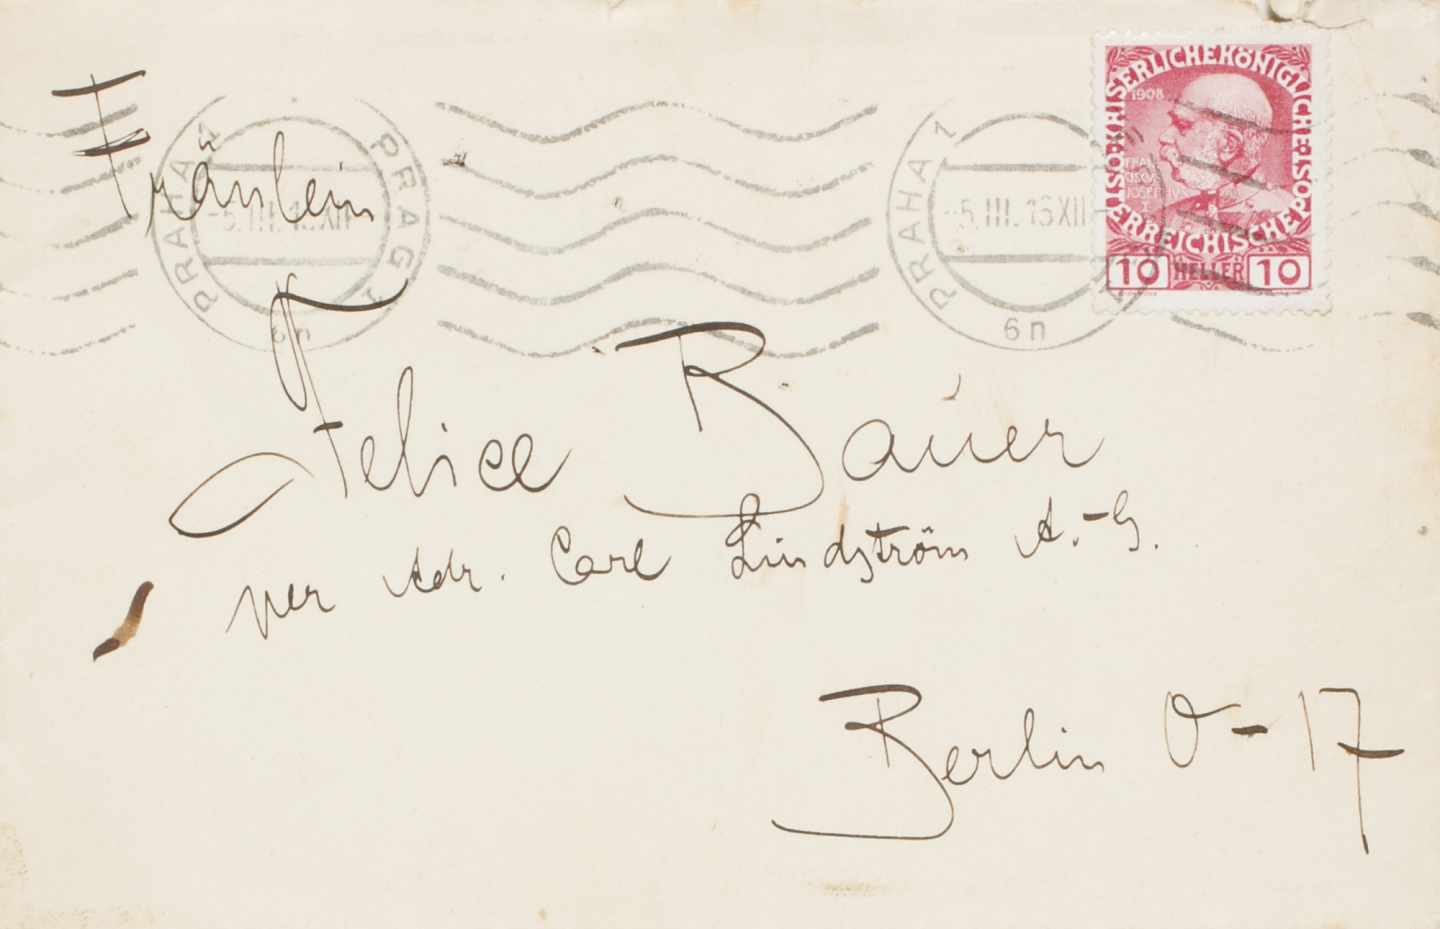 Fräulein
Felice Bauer
per Adr. Carl Lindström A.-G.
Berlin O-17
PRAHA 1 PRAG 1
-5.III.13XII
6n
PRAHA 1
-5.III.13XII-
6n
KAISERLICHEKÖNIGLICHE
ÖSTERREICHISCHEPOST
1908
FRANCISCVS JOSEPH I
10 HELLER 10